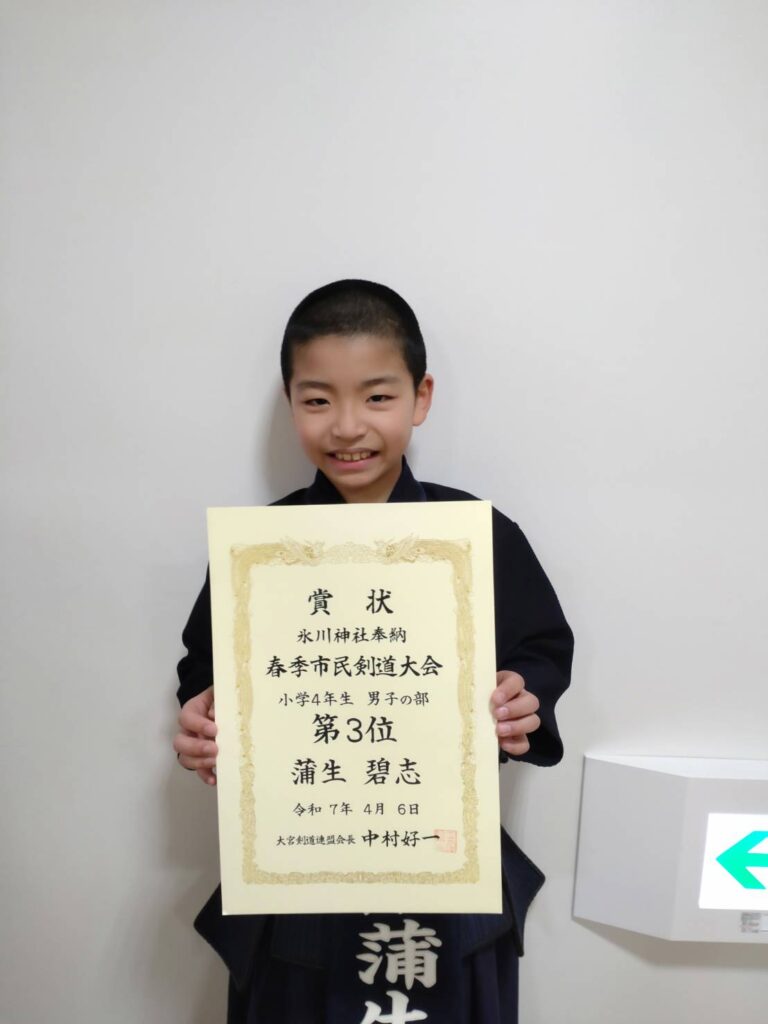 賞 状
氷川神社奉納
春季市民剣道大会
小学4年生 男子の部
第3位
蒲生 碧志
令和 7年 4月 6日
大宮剣道連盟会長 中村好一
蒲生